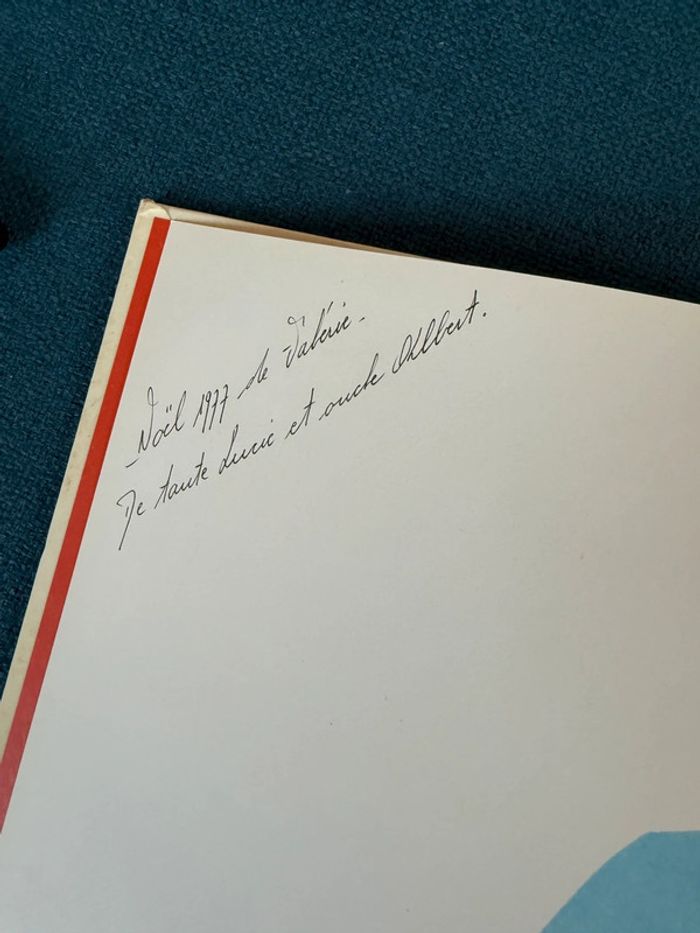 Noël 1977 de Valérie.
De tante Lucie et oncle Albert.